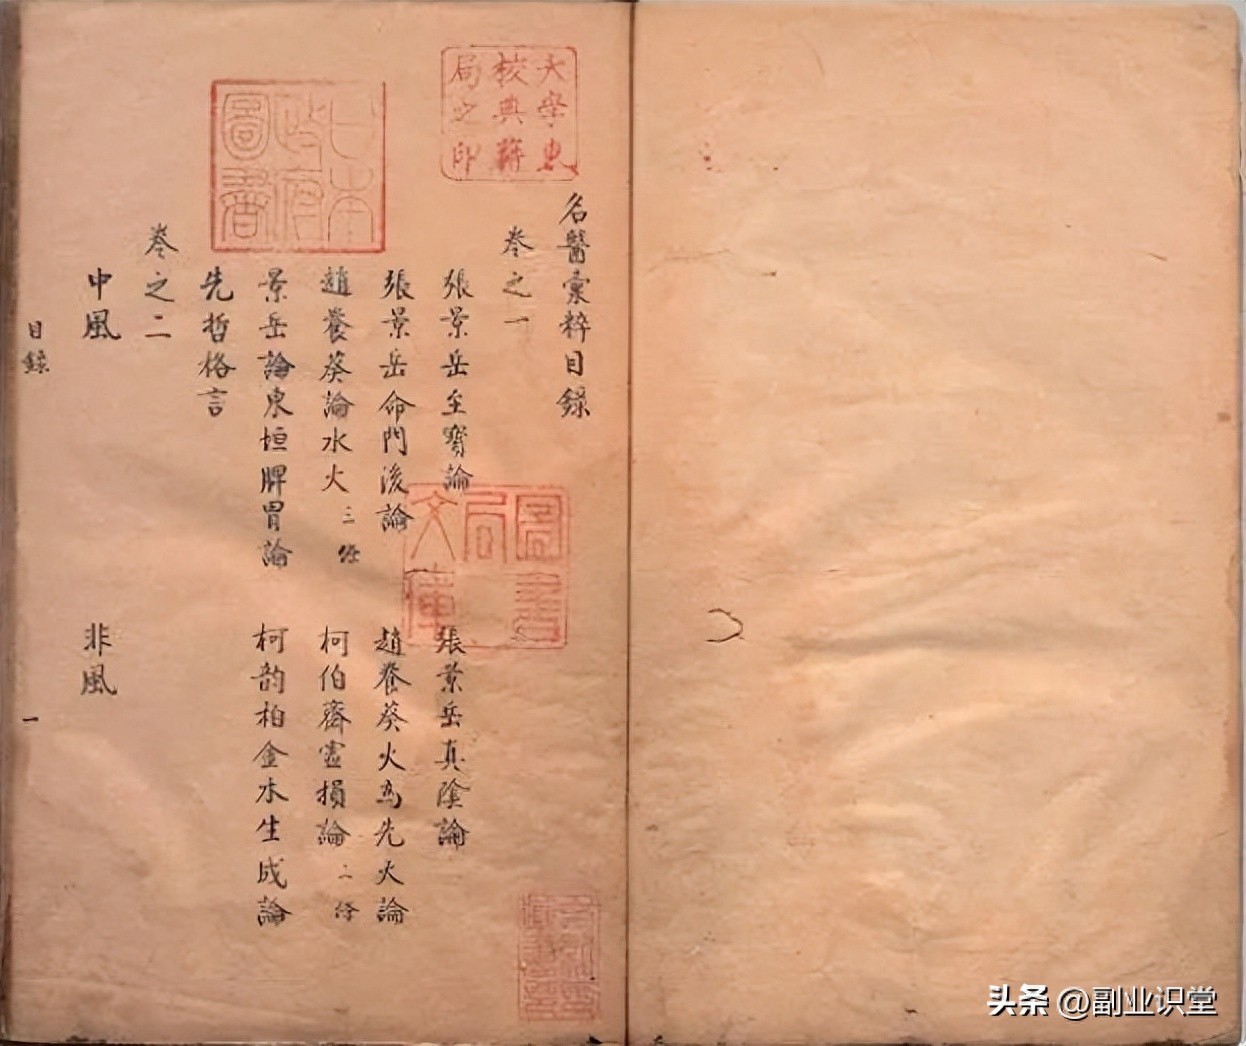 大學東
校典籍
局之印
日本
政府
圖書
名醫彙粹目錄
卷之一
張景岳至寶論
張景岳真陰論
張景岳命門後論
趙養葵火為先天論
趙養葵論水火 三條
柯伯齋虛損論 二條
景岳論東垣脾胃論
柯韵柏金水生成論
先哲格言
卷之二
中風
非風
目錄
一
圖書
局
文庫
头条 @副业识堂